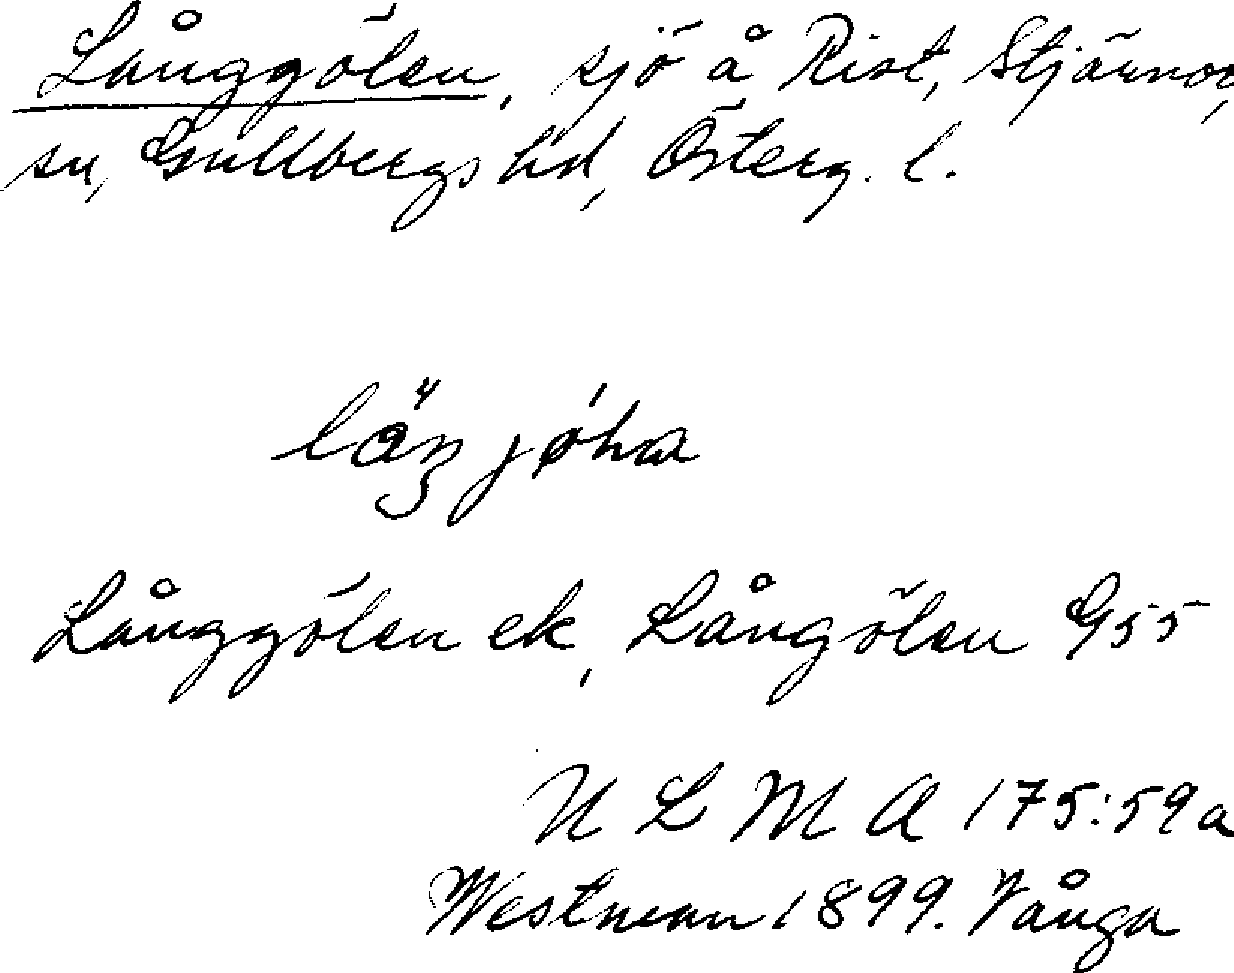 Långgölen, sjö å Rist, Stjärnor,
sn, Gullbergs hd, Österg. l.
Långgölen ek, Långölen G55
ULMA 175:59a
Westman 1899. Vånga